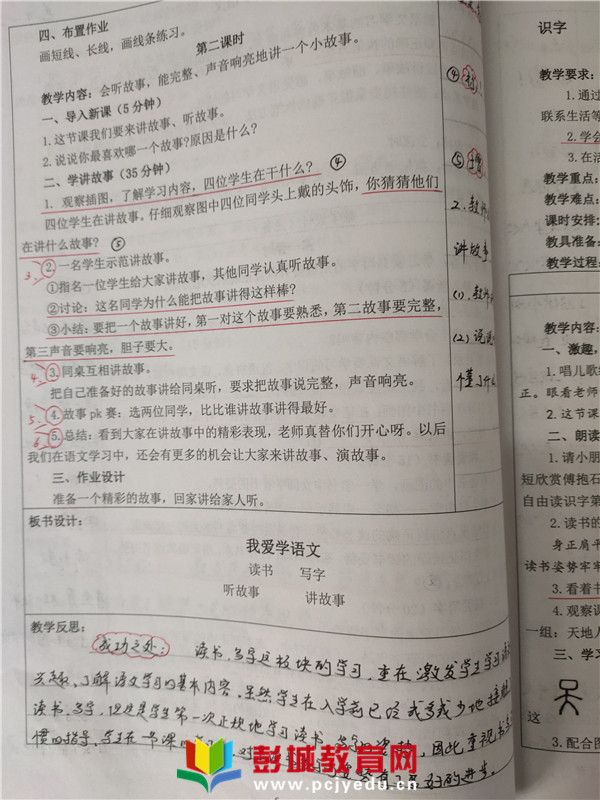 四、布置作业
画短线、长线，画线条练习。
第二课时
教学内容：会听故事，能完整、声音响亮地讲一个小故事。
一、导入新课（5分钟）
1.这节课我们要来讲故事、听故事。
2.说说你最喜欢哪一个故事?原因是什么?
二、学讲故事（35分钟）
1. 观察插图，了解学习内容，四位学生在干什么? ④
四位学生在讲故事。仔细观察图中四位同学头上戴的头饰，你猜猜他们
在讲什么故事? ⑤
3. ②一名学生示范讲故事。
①指名一位学生给大家讲故事，其他同学认真听故事。
②讨论：这名同学为什么能把故事讲得这样棒?
③小结：要把一个故事讲好，第一对这个故事要熟悉，第二故事要完整，
第三声音要响亮，胆子要大。
4. ③同桌互相讲故事。
把自己准备好的故事讲给同桌听，要求把故事说完整，声音响亮。
5. ④故事pk赛：选两位同学，比比谁讲故事讲得最好。
6. ⑤总结：看到大家在讲故事中的精彩表现，老师真替你们开心呀。以后
我们在语文学习中，还会有更多的机会让大家来讲故事、演故事。
三、作业设计
准备一个精彩的故事，回家讲给家人听。
板书设计：
我爱学语文
读书 写字
听故事 讲故事
教学反思：
成功之处： 读书、写字这板块的学习，重在激发学生学习语
兴趣，了解语文学习的基本内容。虽然学生在入学前已经或多或少地接触
读书、写字，但这是学生第一次正规地学习读书、因此重视书
惯的指导，学生在一节课的进步。
④
⑤
2.教师
讲故事
(1).教师
(2)说说
懂了什么
识字
教学要求：
1.通过
联系生活等
2.学会
3.在活
教学重点：
教学难点：
课时安排：
教具准备：
教学过程：
教学内容：
一、激趣，
1.唱儿歌
正。眼看老师
2.这节课
二、朗读
1.请小朋
短欣赏傅抱石
自由读识字第
2.读书的
身正肩平
读书姿势牢牢
3.看着书
4.观察课
一组：天地人
三、学习
这
3.配合图
彭城教育网
www.pcjyedu.cn